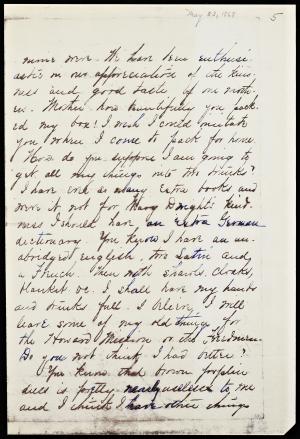 May 23, 1868
5
mine were. We have been enthusi-
astic in our appreciation of the kind
ness and good taste of our moth-
er. Mother how beautifully you pack-
ed my box! I wish I could imitate
you when I come to pack for home.
How do you suppose I am going to
get all my things into the trunks?
I have ever so many extra books and
were it not for Mary Dwight's kind-
ness I should have an extra German
dictionary. You know I have an un-
abridged English, two Latin and
a French. Then with shawls, cloaks,
blanket &c. I shall have my hands
and trunks full. I believe I will
leave some of my old things for
the Howard Mission or the Freedmen.
Do you not think I had better?
You know that brown poplin
dress is pretty nearly useless to me
and I think I have other things